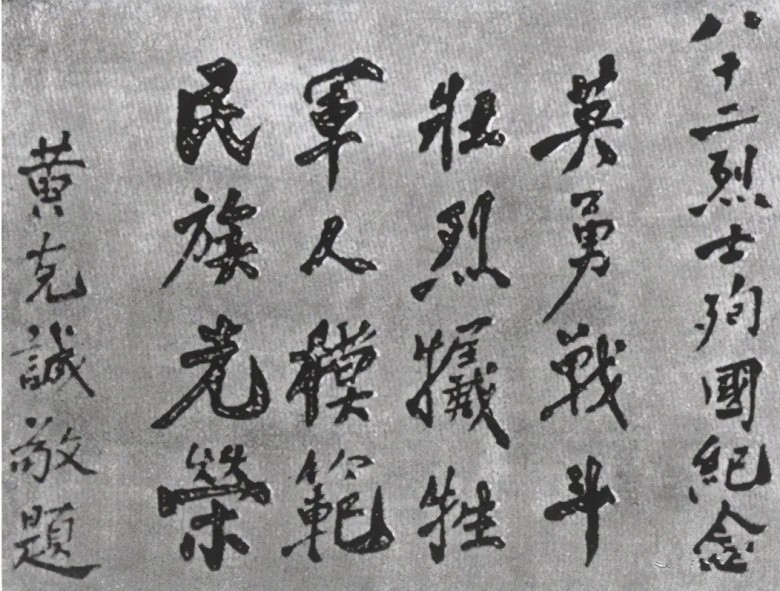 八十二烈士殉國紀念
英勇战斗
壮烈犧牲
軍人模範
民族光榮
黄克誠敬題